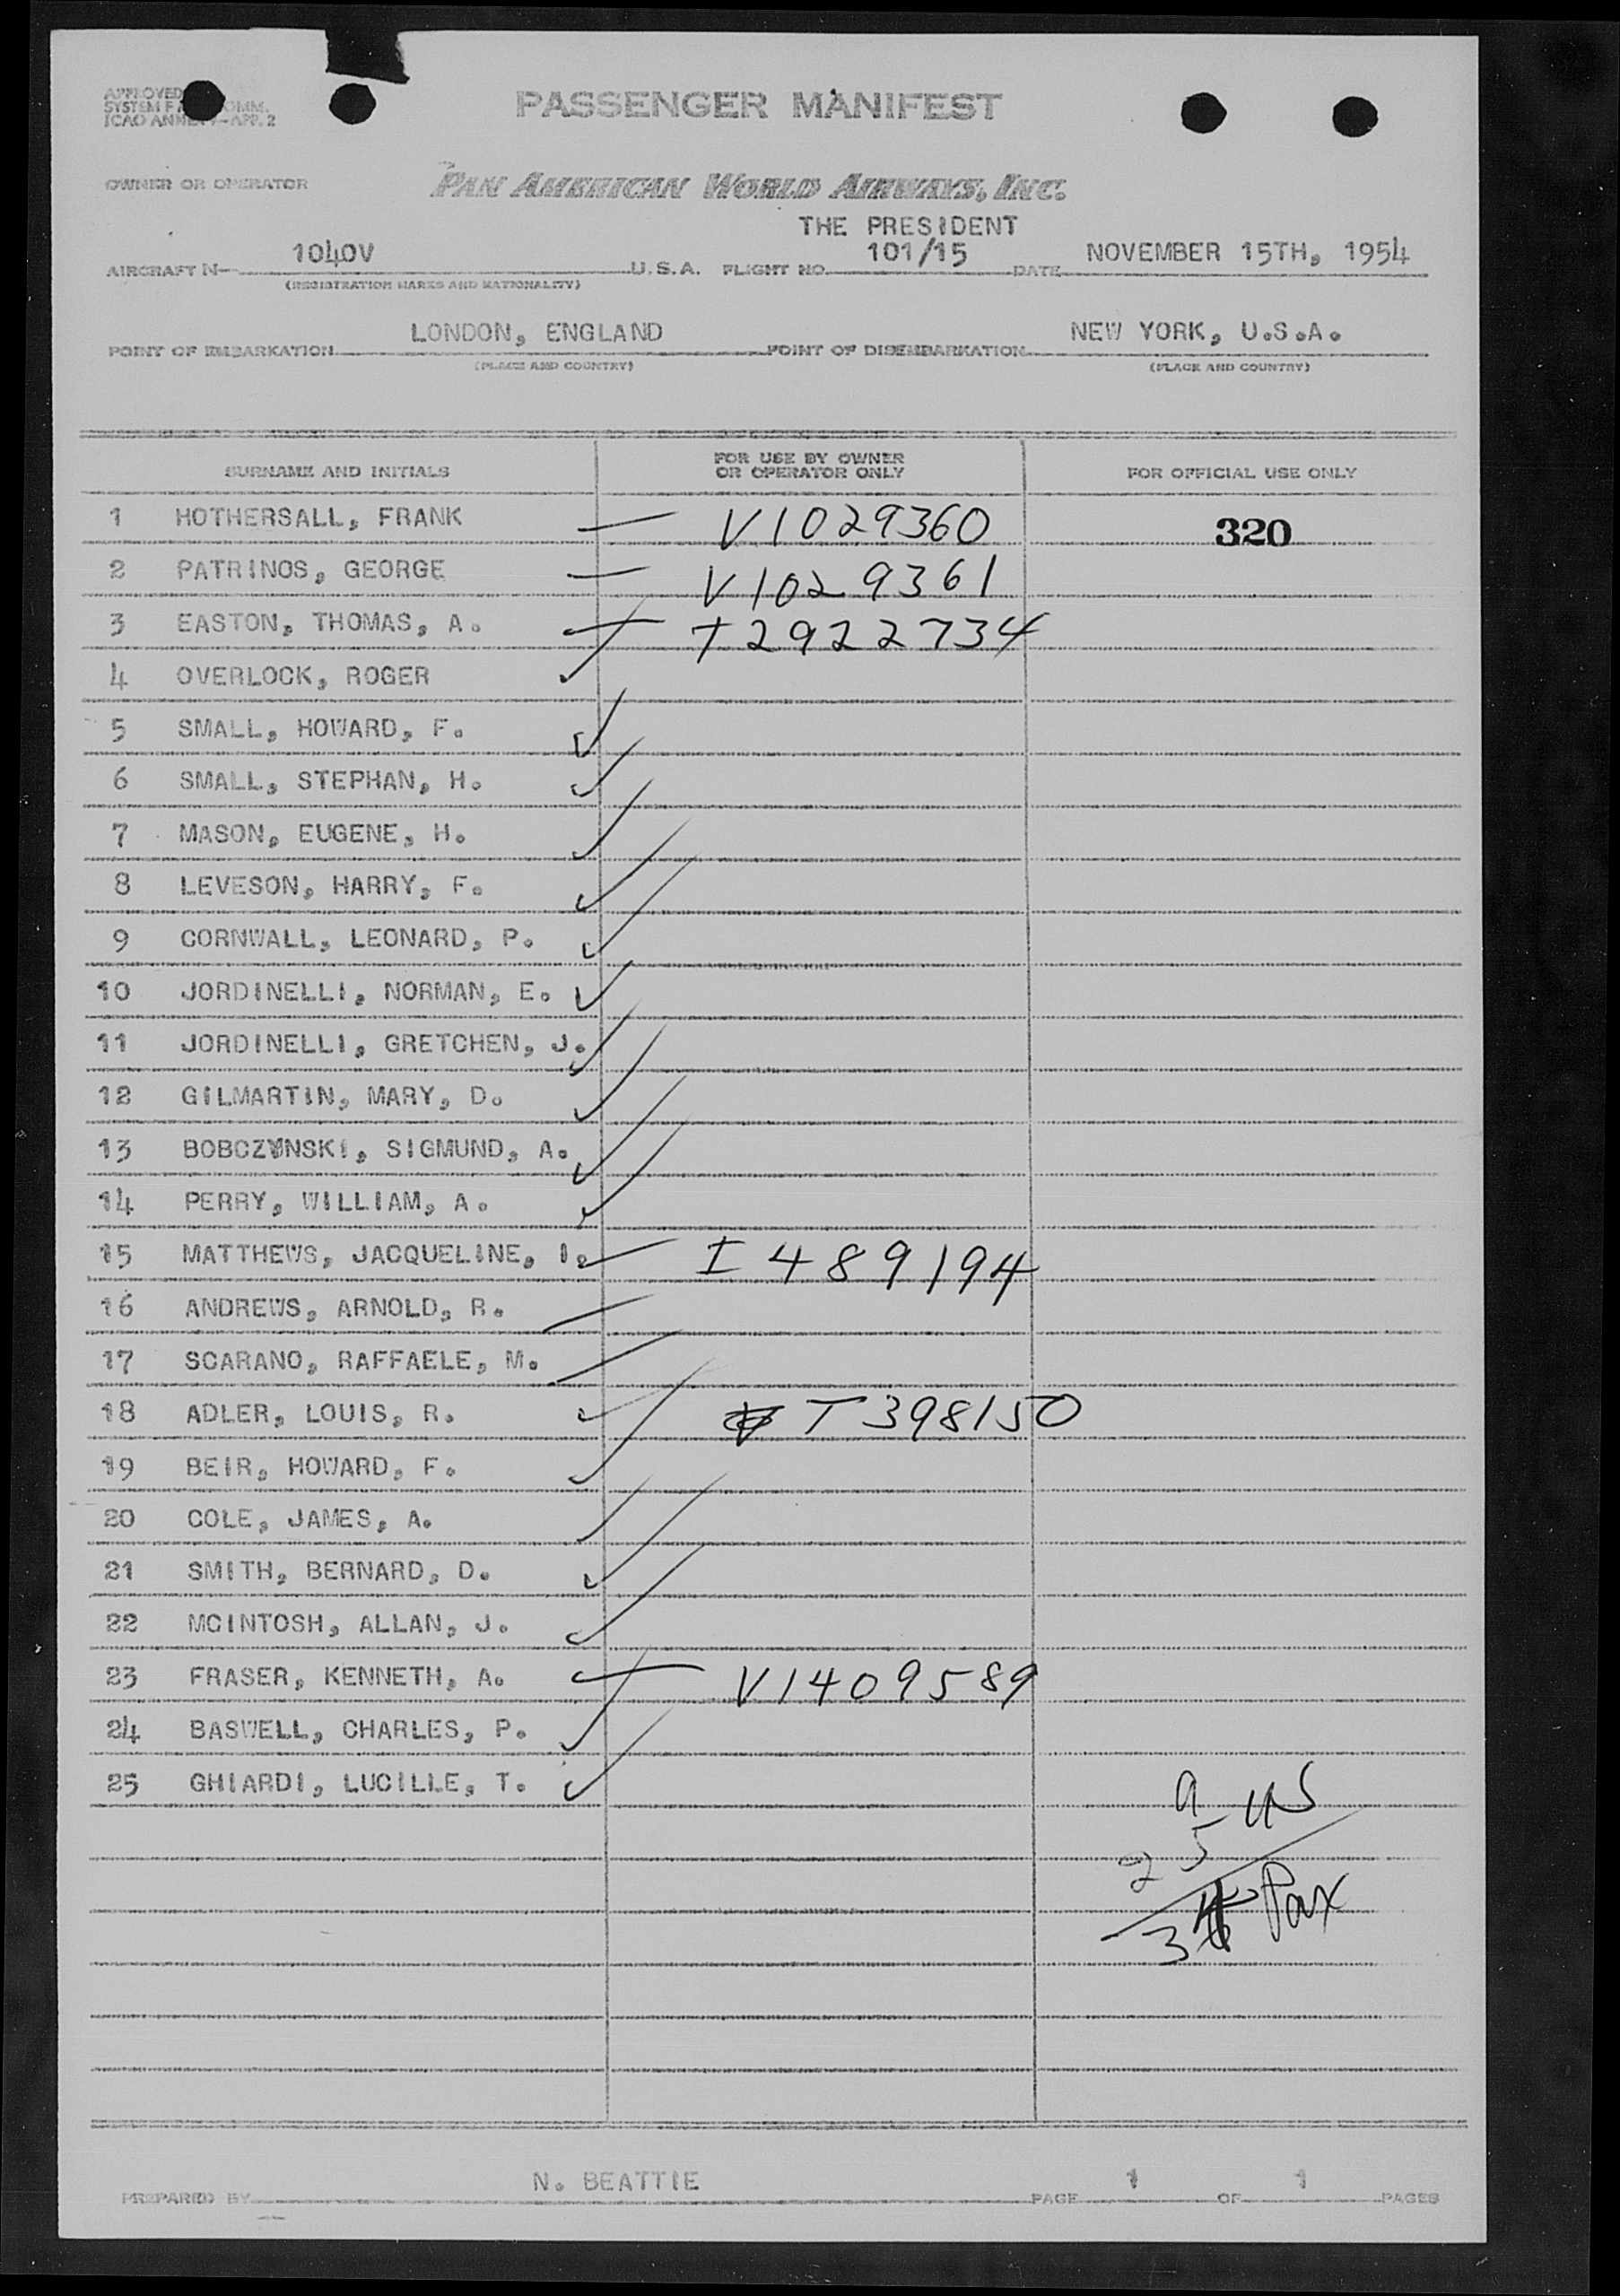 APPROVED
SYSTEM F COMM.
ICAO ANNEX 9-APP. 2
PASSENGER MANIFEST
OWNER OR OPERATOR PAN AMERICAN WORLD AIRWAYS, INC.
THE PRESIDENT
AIRCRAFT N- 1040V U.S.A. FLIGHT NO. 101/15 DATE NOVEMBER 15TH, 1954
(REGISTRATION MARKS AND NATIONALITY)
POINT OF EMBARKATION LONDON, ENGLAND POINT OF DISEMBARKATION NEW YORK, U.S.A.
(PLACE AND COUNTRY) (PLACE AND COUNTRY)
SURNAME AND INITIALS FOR USE BY OWNER OR OPERATOR ONLY FOR OFFICIAL USE ONLY
1 HOTHERSALL, FRANK V1029360 320
2 PATRINOS, GEORGE V1029361
3 EASTON, THOMAS, A. T2922734
4 OVERLOCK, ROGER
5 SMALL, HOWARD, F.
6 SMALL, STEPHAN, H.
7 MASON, EUGENE, H.
8 LEVESON, HARRY, F.
9 CORNWALL, LEONARD, P.
10 JORDINELLI, NORMAN, E.
11 JORDINELLI, GRETCHEN, J.
12 GILMARTIN, MARY, D.
13 BOBCZYNSKI, SIGMUND, A.
14 PERRY, WILLIAM, A.
15 MATTHEWS, JACQUELINE, I. I489194
16 ANDREWS, ARNOLD, R.
17 SCARANO, RAFFAELE, M.
18 ADLER, LOUIS, R. T398150
19 BEIR, HOWARD, F.
20 COLE, JAMES, A.
21 SMITH, BERNARD, D.
22 MCINTOSH, ALLAN, J.
23 FRASER, KENNETH, A. V1409589
24 BASWELL, CHARLES, P.
25 GHIARDI, LUCILLE, T.
9 US
25
Pax
PREPARED BY N. BEATTIE PAGE 1 OF 1 PAGES